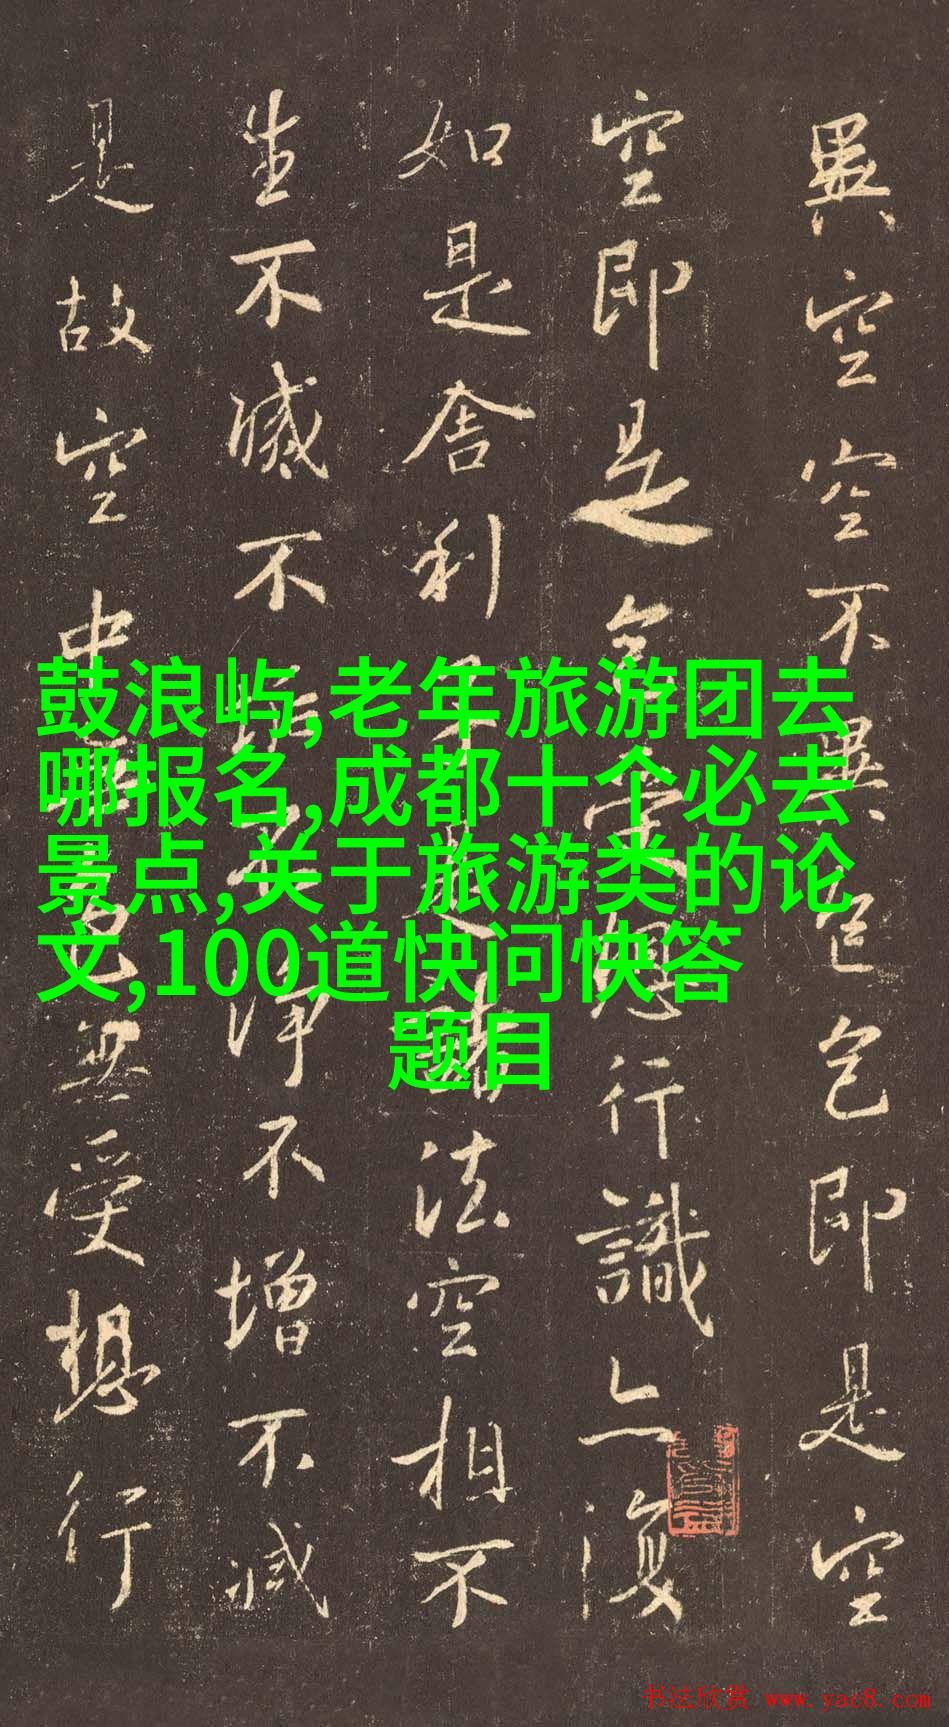 異空空不異色色即是空
空即是色受想行識亦復
如是舍利子是諸法空相不
生不滅不垢不淨不增不減
是故空中無色無受想行
鼓浪屿,老年旅游团去
哪报名,成都十个必去
景点,关于旅游类的论
文,100道快问快答
题目
书法欣赏 www.yac8.com